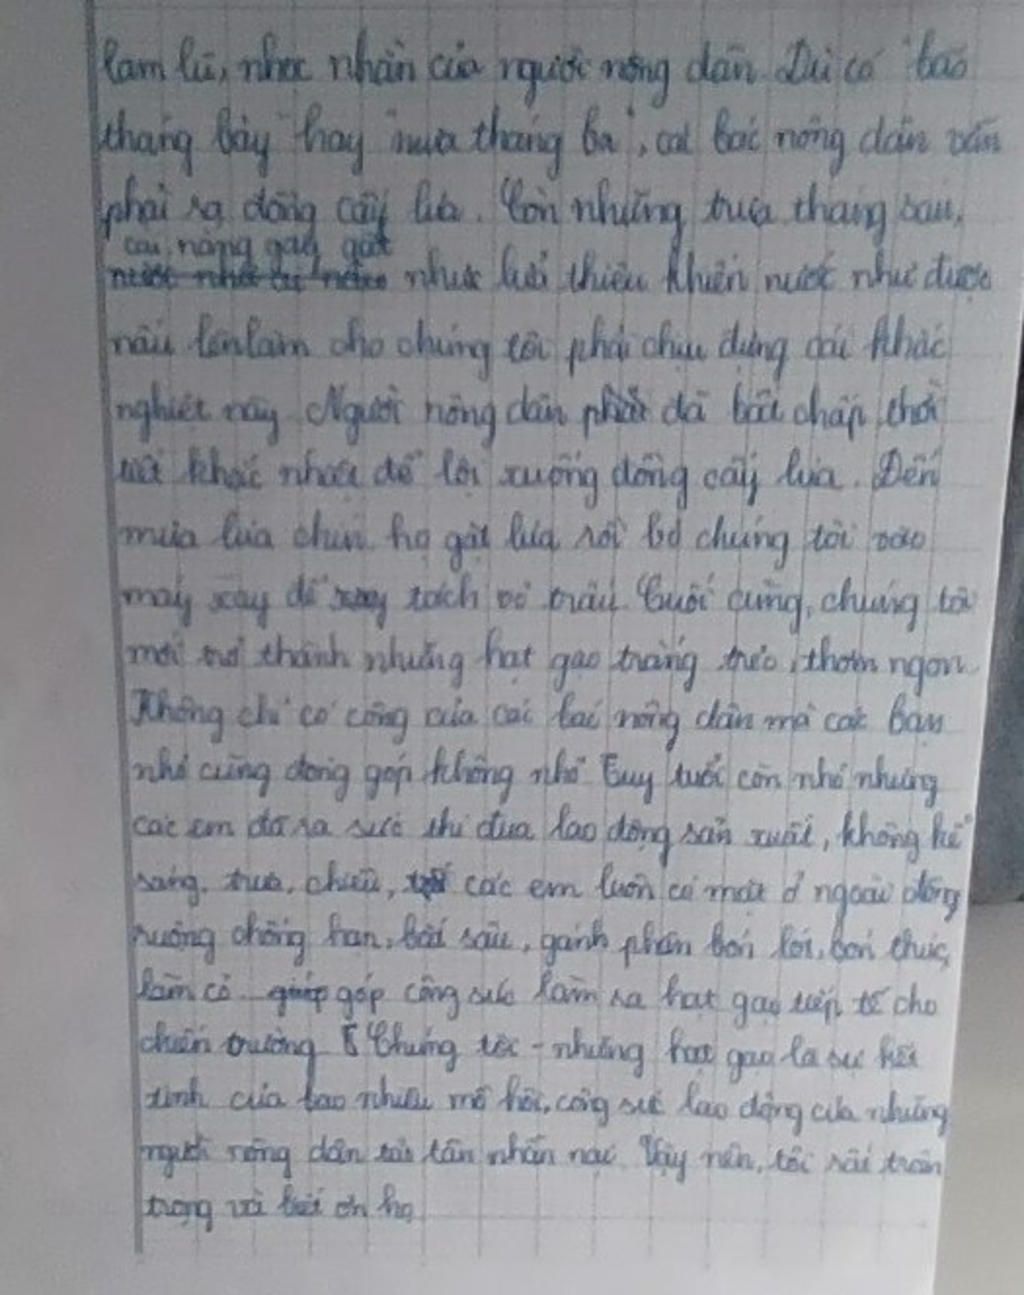 lam lũ, nhọc nhằn của người nông dân. Dù có "bão
tháng bảy" hay "mưa tháng ba", các bác nông dân vẫn
phải ra đồng cấy lúa. Còn những trưa tháng sáu,
cái nắng gay gắt
như lửa thiêu khiến nước như được
nấu lên làm cho chúng tôi phải chịu đựng cái khắc
nghiệt này. Người nông dân đã bất chấp thời
tiết khắc nhiệt để lội xuống đồng cấy lúa. Đến
mùa lúa chín họ gặt lúa rồi bỏ chúng tôi vào
máy xay để tách vỏ trấu. Cuối cùng, chúng tôi
mới trở thành những hạt gạo trắng trẻo, thơm ngon.
Không chỉ có công của các bác nông dân mà các bạn
nhỏ cũng đóng góp không nhỏ. Tuy tuổi còn nhỏ nhưng
các em đã ra sức thi đua lao động sản xuất, không kể
sáng, trưa, chiều, tối các em luôn có mặt ở ngoài đồng
ruộng chống hạn, bắt sâu, gánh phân bón lót, bón thúc,
làm cỏ góp công sức làm ra hạt gạo tiếp tế cho
chiến trường. Chúng tôi - những hạt gạo là sự kết
tinh của bao nhiêu mồ hôi, công sức lao động của những
người nông dân tảo tần nhẫn nại. Vậy nên, tôi rất trân
trọng và biết ơn họ.